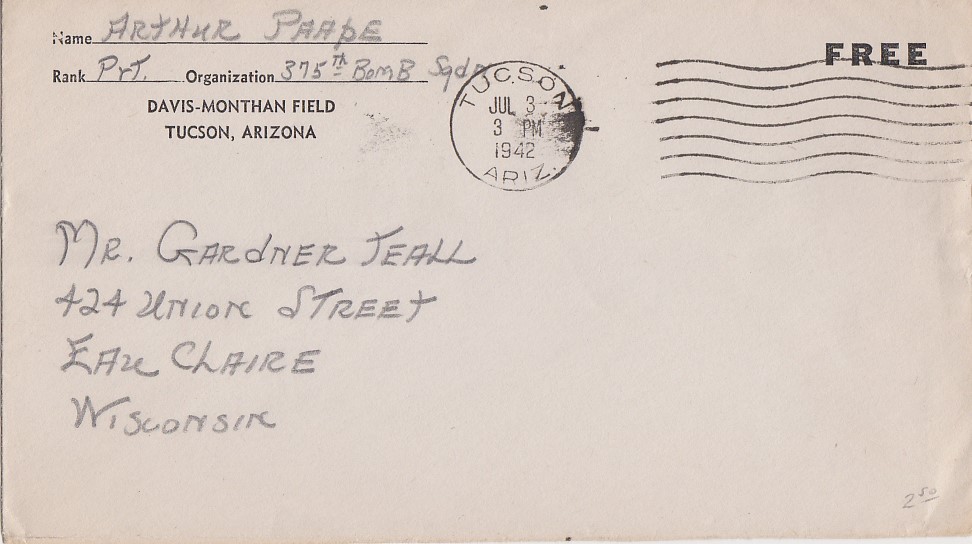 Name ARTHUR PAAPE
Rank PVT. Organization 375TH BOMB Sqdn
DAVIS-MONTHAN FIELD
TUCSON, ARIZONA
TUCSON
JUL 3
3 PM
1942
ARIZ.
FREE
MR. GARDNER TEALL
424 UNION STREET
EAU CLAIRE
WISCONSIN
2 50